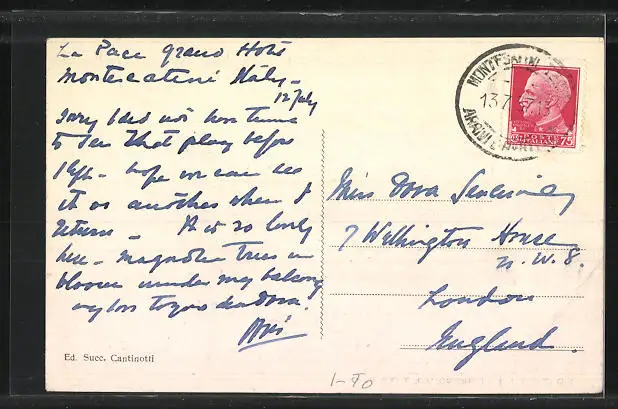 La Pace Grand Hotel
Montecatini Italy –
12 July
Sorry I did not have time
to see that play before
I left – hope we can see
it or another when I
return – It is so lovely
here – magnolia trees in
bloom under my balcony
my love to you dear Dora.
Ed. Succ. Cantinotti
MONTECATINI
13.7
75
Miss Dora
7 Wellington House
N.W.8.
London
England.
1-70